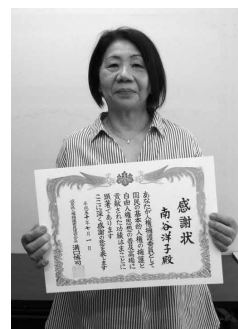 感謝状
南谷洋子殿
あなたが人権擁護委員として
国民の基本的人権の擁護と
自由人権思想の普及高揚に
貢献された功績はまことに
顕著であります
ここに深く感謝の意を表します
七月一日